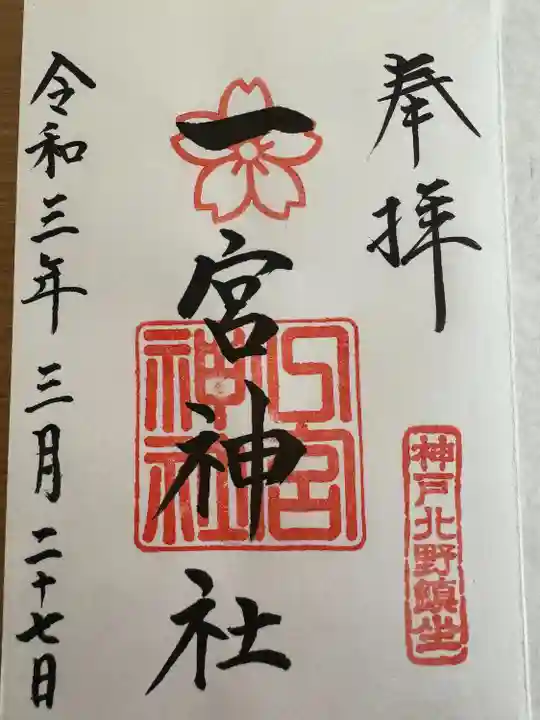 奉拝
神戸北野鎮坐
一宮神社
令和三年三月二十七日